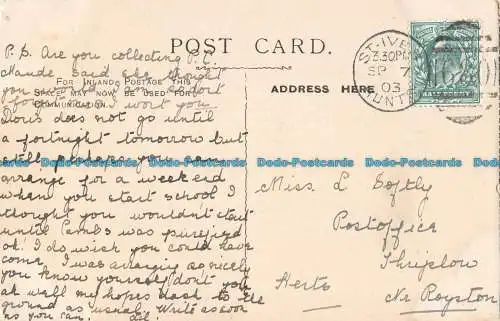 POST CARD.
FOR INLAND POSTAGE THIS
SPACE MAY NOW BE USED FOR
COMMUNICATION.
ADDRESS HERE
ST. IVES
3.30PM
SP 7
03
HUNTS
P.S. Are you collecting P.C.
Maude said she thought
you would
I won't you
Doris does not go until
a fortnight tomorrow but
still perhaps you can
arrange for a weekend
when you start school I
thought you wouldn't start
until Combs was purified
ok! I do wish you could have
come, I was arranging so nicely
you know yourself don't you
ah well my hopes dash to the
ground as usual. Write as soon
as you can.
Miss. L Softly
Postoffice
Thriplow
Nr Royston
Herts
Dodo-Postcards Dodo-Postcards Dodo-Postcards Dodo-Postcards